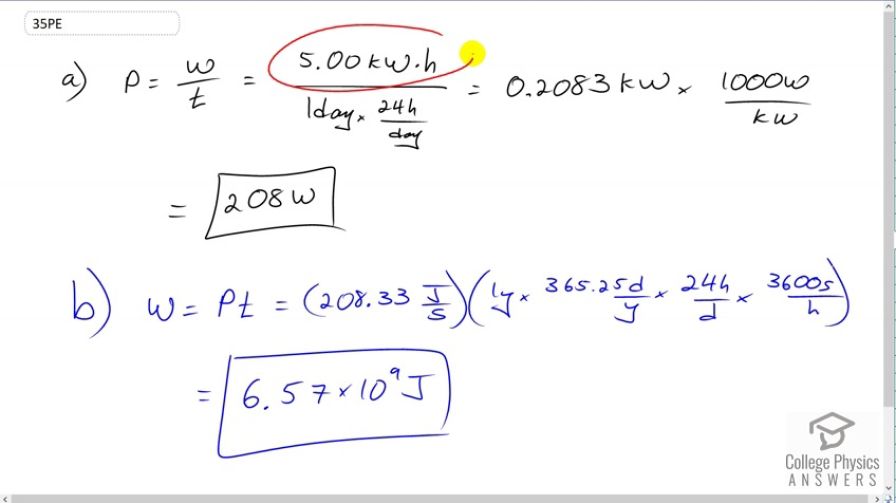 35PE
a) P = w/t = 5.00 kW·h / (1day × 24h/day) = 0.2083 kW × 1000W/kW
= 208 W
b) W = Pt = (208.33 J/s)(1y × 365.25d/y × 24h/d × 3600s/h)
= 6.57 × 10⁹ J
College Physics
ANSWERS